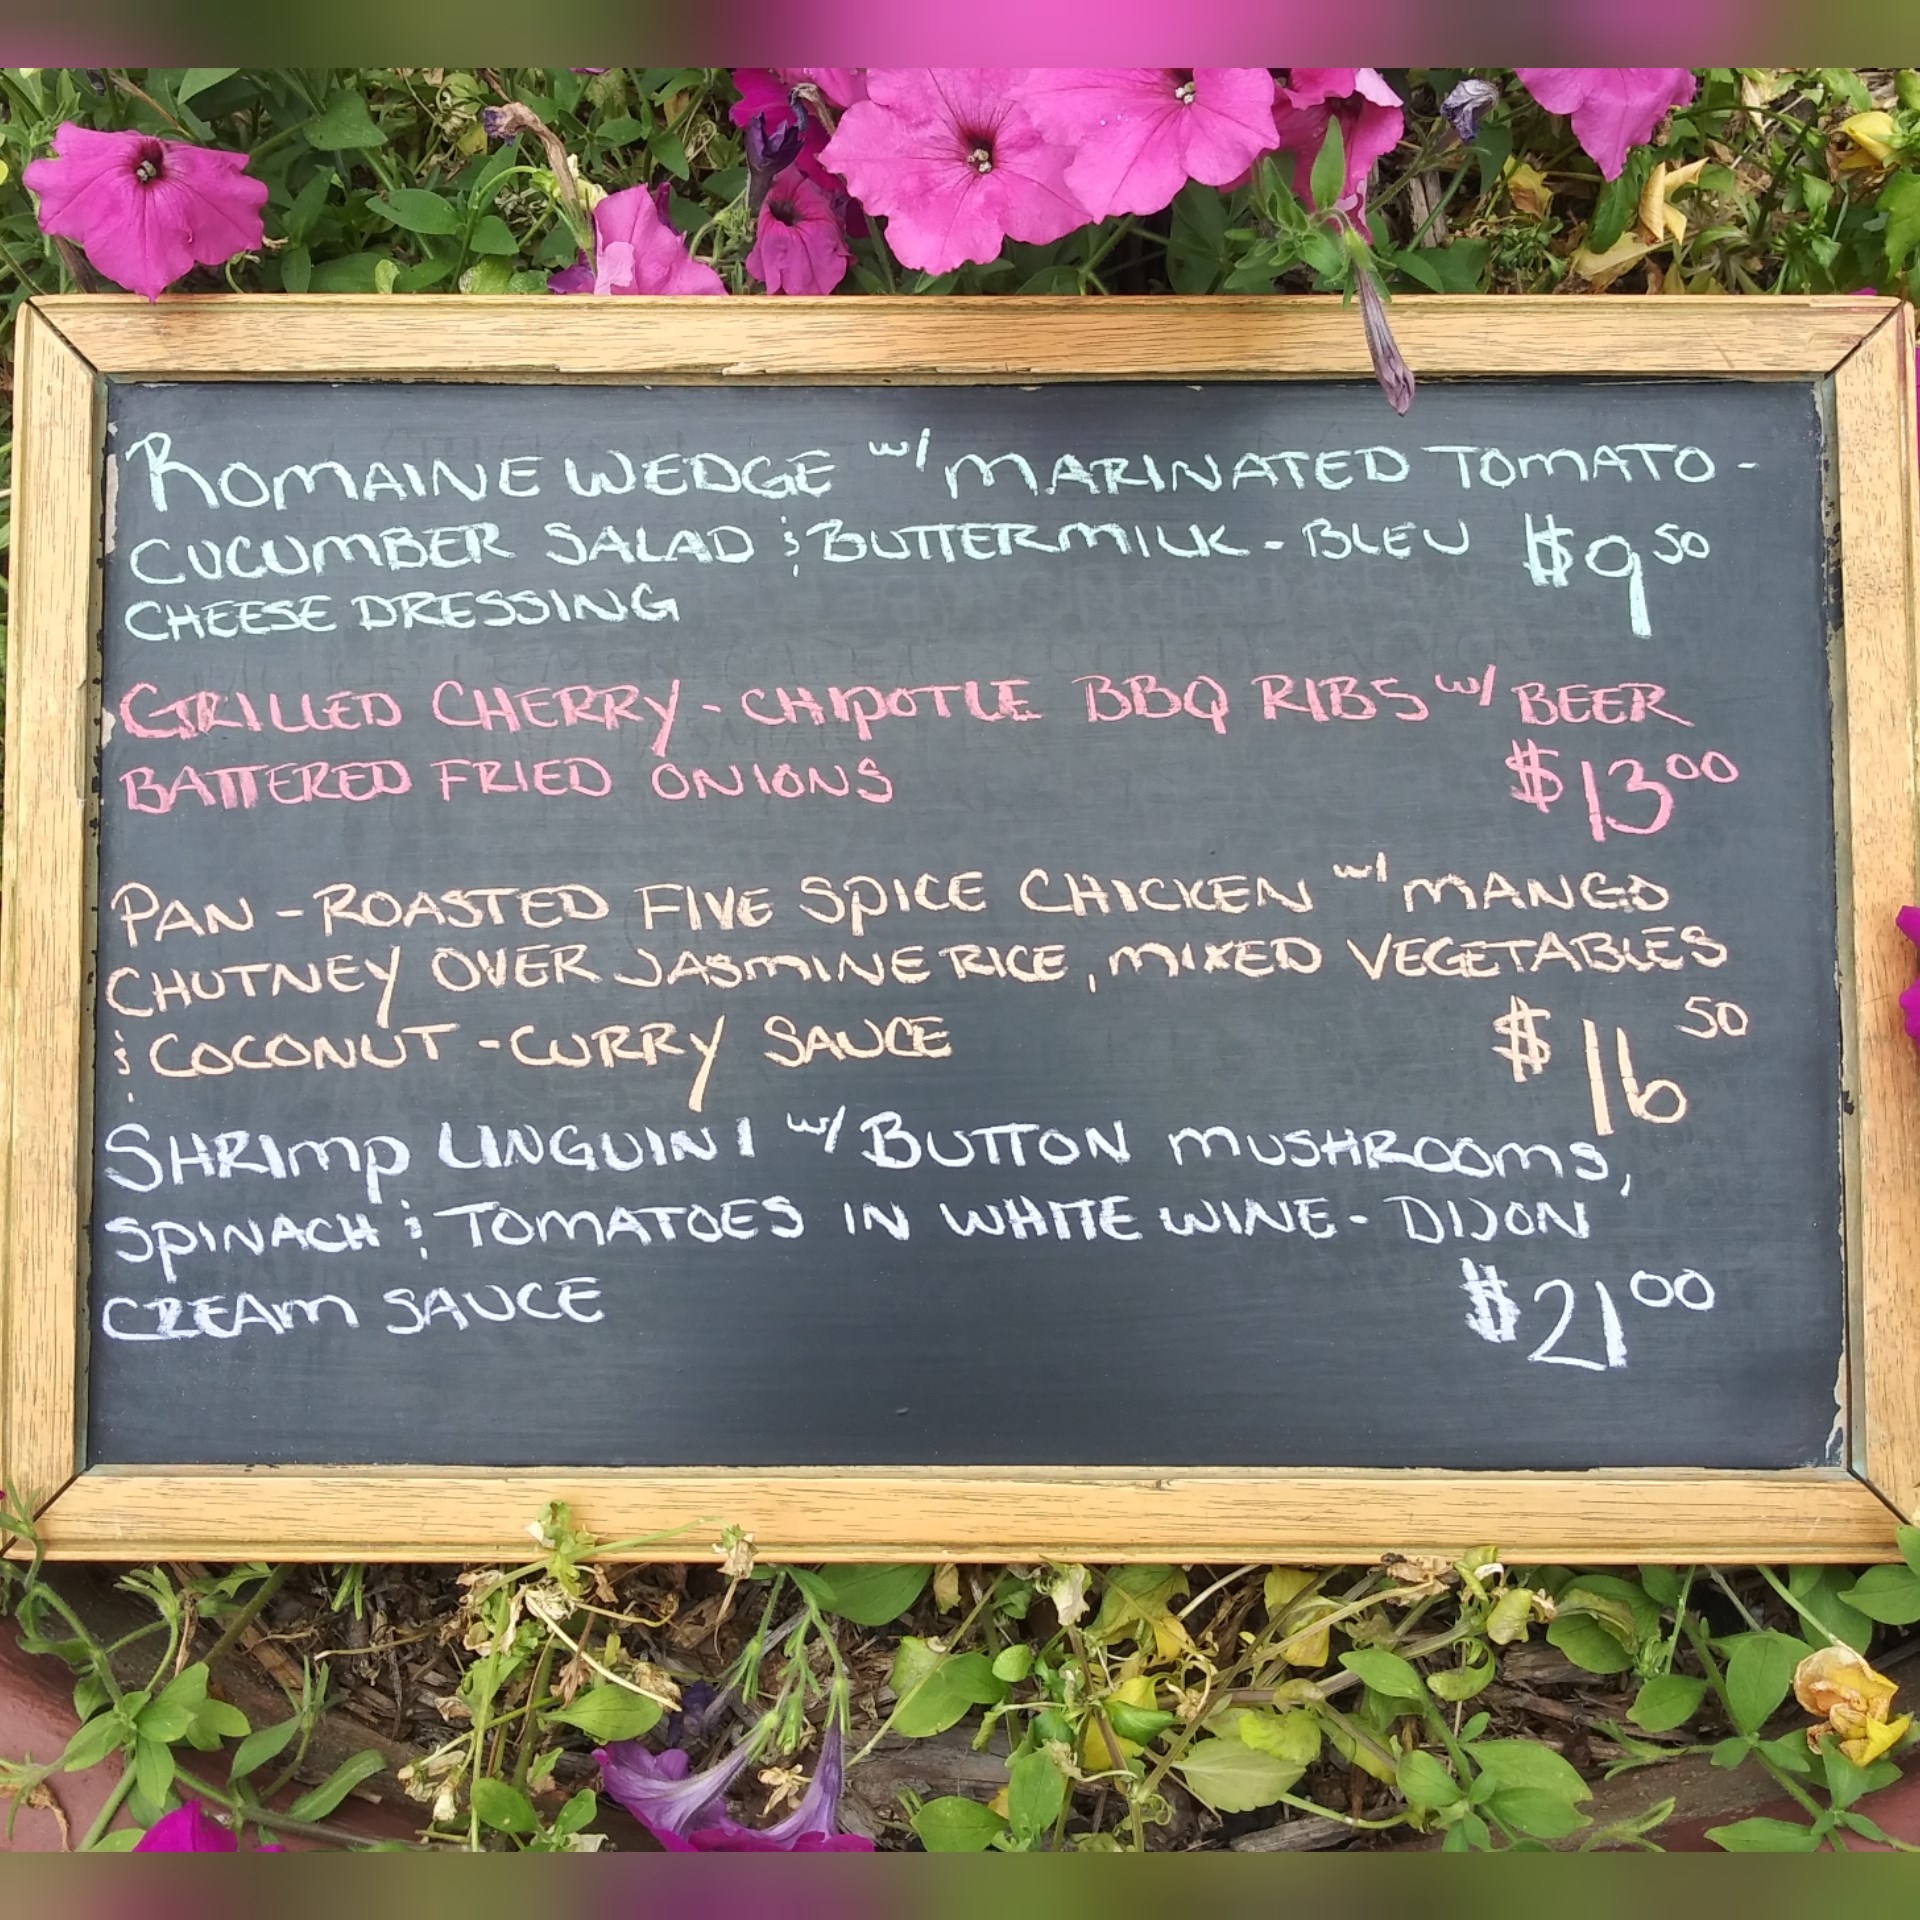 ROMAINE WEDGE w/ MARINATED TOMATO-
CUCUMBER SALAD & BUTTERMILK-BLEU $9 50
CHEESE DRESSING
GRILLED CHERRY-CHIPOTLE BBQ RIBS w/ BEER
BATTERED FRIED ONIONS $13 00
PAN-ROASTED FIVE SPICE CHICKEN w/ MANGO
CHUTNEY OVER JASMINE RICE, MIXED VEGETABLES
& COCONUT-CURRY SAUCE $16 50
SHRIMP LINGUINI w/ BUTTON MUSHROOMS,
SPINACH & TOMATOES IN WHITE WINE-DIJON
CREAM SAUCE $21 00